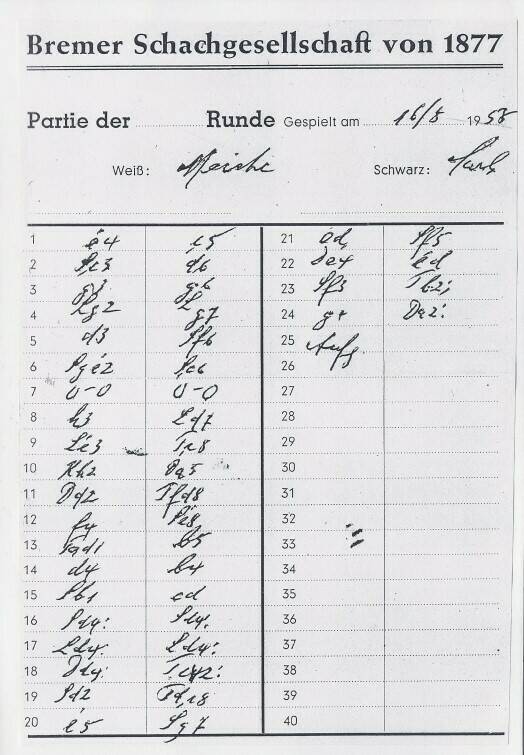 Bremer Schachgesellschaft von 1877
Partie der Runde Gespielt am 19
Weiß: Schwarz:
1 e4 c5
2 Sc3 d6
3 g3 g6
4 Lg2 Lg7
5 d3 Sf6
6 Sge2 Sc6
7 0-0 0-0
8 h3 Ld7
9 Le3 Tc8
10 Kh2 Da5
11 Dd2 Tfd8
12 f4 Se8
13 Tad1 b5
14 d4 b4
15 Sb1 cd
16 Sd4: Sd4:
17 Ld4: Ld4:
18 Dd4: Tc2:
19 Sd2 Tdc8
20 e5 Sg7
21 ed Sf5
22 De4 ed
23 Sf3 Tb2:
24 g4 Da2:
25 Aufg
26
27
28
29
30
31
32
33
34
35
36
37
38
39
40